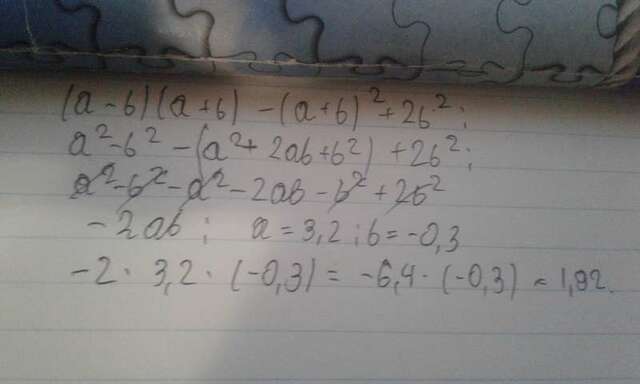 (a - b)(a + b) - (a + b)² + 2b²;
a² - b² - (a² + 2ab + b²) + 2b²;
a² - b² - a² - 2ab - b² + 2b²
- 2ab; a = 3,2; b = -0,3
-2 · 3,2 · (-0,3) = -6,4 · (-0,3) = 1,92.